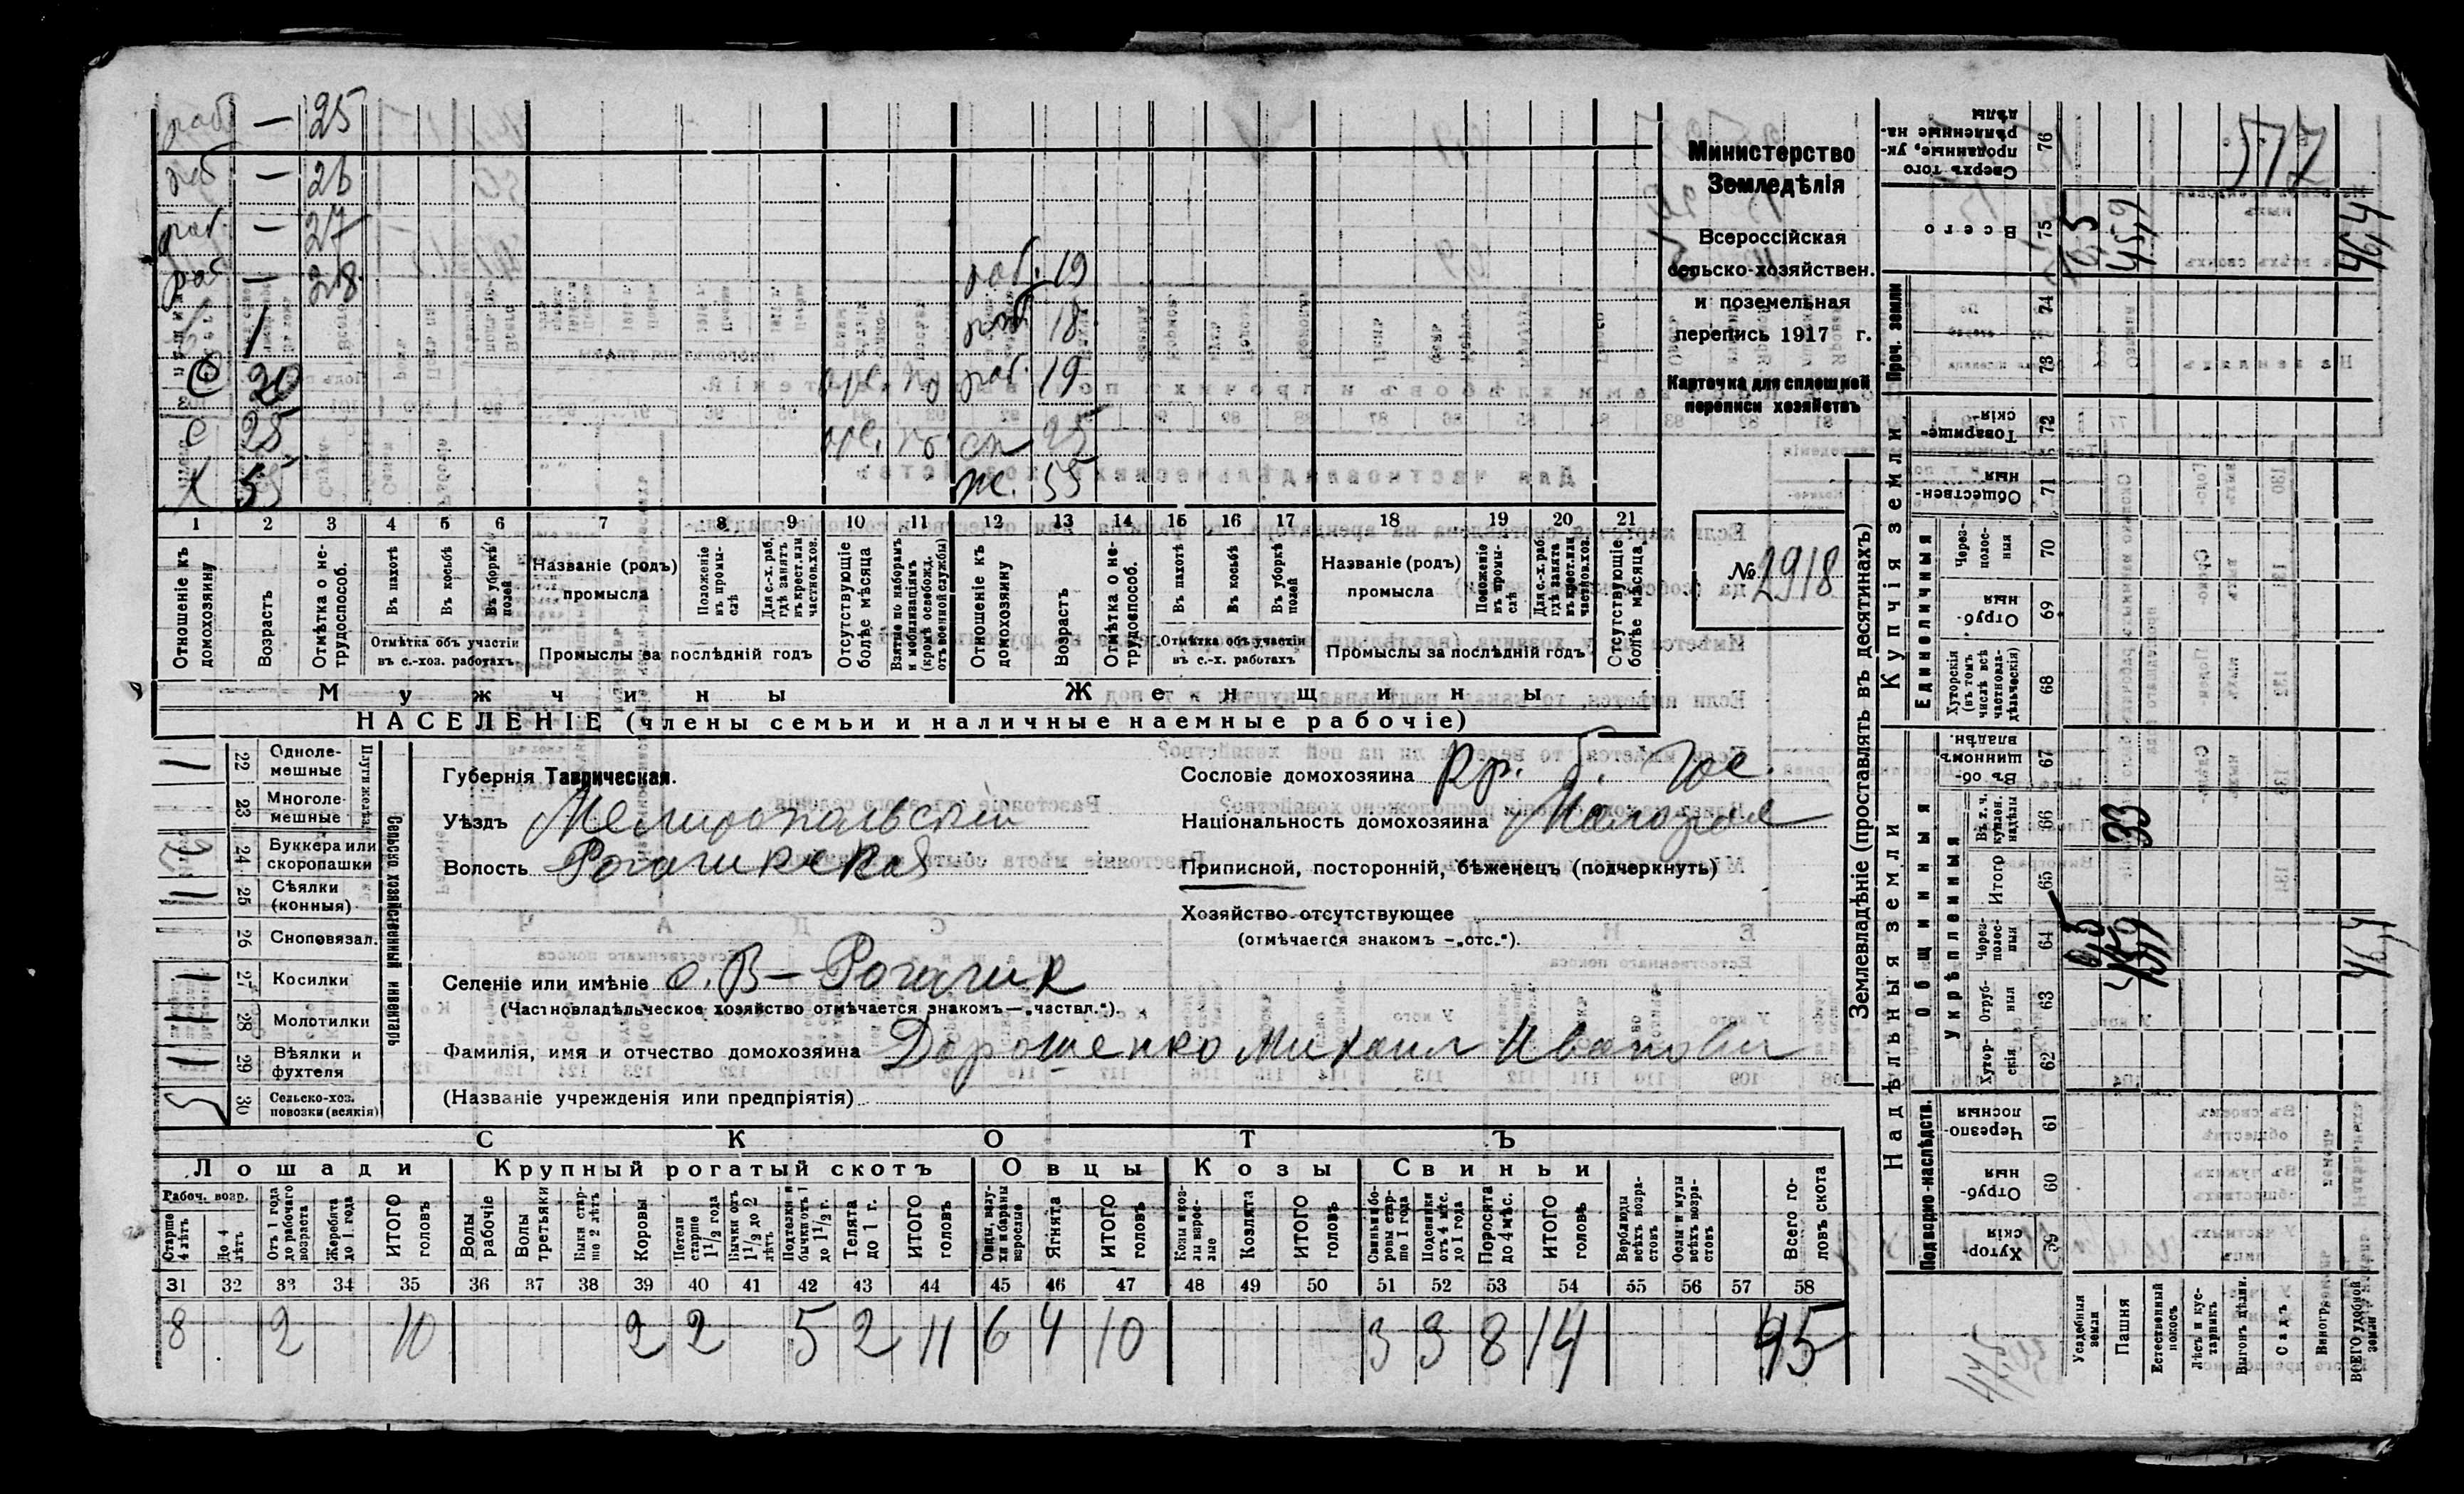 раб — 25
раб — 26
раб. — 27
раб — 28
раб. 19
1 раб. 18
С 20 раб. 19
С 25 сп 25
Х 55 ж. 55
1 2 3 4 5 6 7 8 9 10 11 12 13 14 15 16 17 18 19 20 21
Отношеніе къ домохозяину
Возрастъ
Отмѣтка о не-трудоспособ.
Въ пахотѣ
Въ косьбѣ
Въ уборкѣ полей
Отмѣтка объ участіи въ с.-хоз. работахъ
Названіе (родъ) промысла
Положеніе въ промы-слѣ
Для с.-х. раб. гдѣ занятъ въ крест. или частнов. хоз.
Промыслы за послѣдній годъ
Отсутствующіе болѣе мѣсяца
Взятые по наборамъ и мобилизаціямъ (кромѣ освобожд. отъ военной службы)
Отношеніе къ домохозяину
Возрастъ
Отмѣтка о не-трудоспособ.
Въ пахотѣ
Въ косьбѣ
Въ уборкѣ полей
Отмѣтка объ участіи въ с.-х. работахъ
Названіе (родъ) промысла
Положеніе въ промы-слѣ
Для с.-х. раб. гдѣ занята въ крест. или частнов. хоз.
Промыслы за послѣдній годъ
Отсутствующіе болѣе мѣсяца
Мужчины
Женщины
НАСЕЛЕНІЕ (члены семьи и наличные наемные рабочіе)
Министерство
Земледѣлія
Всероссійская
сельско-хозяйствен.
и поземельная
перепись 1917 г.
Карточка для сплошной
переписи хозяйствъ
№ 2918
Губернія Таврическая.
Уѣздъ Мелитопольскій
Волость Рогачикская
Селеніе или имѣніе с. В-Рогачик
(Частновладѣльческое хозяйство отмѣчается знакомъ — „частвл.“).
Фамилія, имя и отчество домохозяина Дорошенко Михаил Иванови
(Названіе учрежденія или предпріятія)
Сословіе домохозяина
Національность домохозяина Малорос
Приписной, посторонній, бѣженецъ (подчеркнуть)
Хозяйство отсутствующее
(отмѣчается знакомъ — „отс.“).
Сельско-хозяйственный инвентарь
22 Одноле-мешные
23 Многоле-мешные
24 Буккера или скоропашки
25 Сѣялки (конныя)
26 Сноповязал.
27 Косилки
28 Молотилки
29 Вѣялки и фухтеля
30 Сельско-хоз. повозки (всякія)
СКОТЪ
Лошади
Крупный рогатый скотъ
Овцы
Козы
Свиньи
Рабоч. возр.
Старше 4 лѣтъ
До 4 лѣтъ
Отъ 1 года до рабочаго возраста
Жеребята до 1 года
ИТОГО головъ
Волы рабочіе
Волы третьяки
Быки стар-ше 2 лѣтъ
Коровы
Нетели старше 1 1/2 года
Бычки отъ 1 1/2 до 2 лѣтъ
Подтелки и бычки отъ 1 до 1 1/2 г.
Телята до 1 г.
ИТОГО головъ
Овцы, валу-хи и бараны взрослые
Ягнята
ИТОГО головъ
Козы и коз-лы взрос-лые
Козлята
ИТОГО головъ
Свиньи и бо-ровы стар-ше 1 года
Подсвинки отъ 4 мѣс. до 1 года
Поросята до 4 мѣс.
ИТОГО головъ
Верблюды всѣхъ возра-стовъ
Ослы и мулы всѣхъ возра-стовъ
Всего го-ловъ скота
31 32 33 34 35 36 37 38 39 40 41 42 43 44 45 46 47 48 49 50 51 52 53 54 55 56 57 58
8 2 10 2 2 5 2 11 6 4 10 3 3 8 14 45
Землевладѣніе (проставлять въ десятинахъ)
Надѣльныя земли
Купчія земли
Проч. земли
Подворно-наслѣдств.
Общинныя
Укрѣпленныя
Единоличныя
Хутор-скія 59
Отруб-ныя 60
Черезпо-лосныя 61
Хутор-скія 62
Отруб-ныя 63
Через-полос-ныя 64
Итого 65
Въ т. ч. куплен. надѣлы 66
Въ об-щинномъ владѣн. 67
Хуторскія (въ томъ числѣ всѣ частновла-дѣльческія) 68
Отруб-ныя 69
Через-полос-ныя 70
Обществен-ныя 71
Товарище-скія 72
73
74
Всего 75
Сверхъ того проданные, ук-рѣпленные на-дѣлы 76
Усадебныя земли
Пашня
Естественный покосъ
Лѣсъ и кус-тарникъ
Выгонъ дѣлим.
Садъ
Виногр.
ВСЕГО удобной земли
0,5
45,9
33
46,4
0,5
45,9
46,4
577